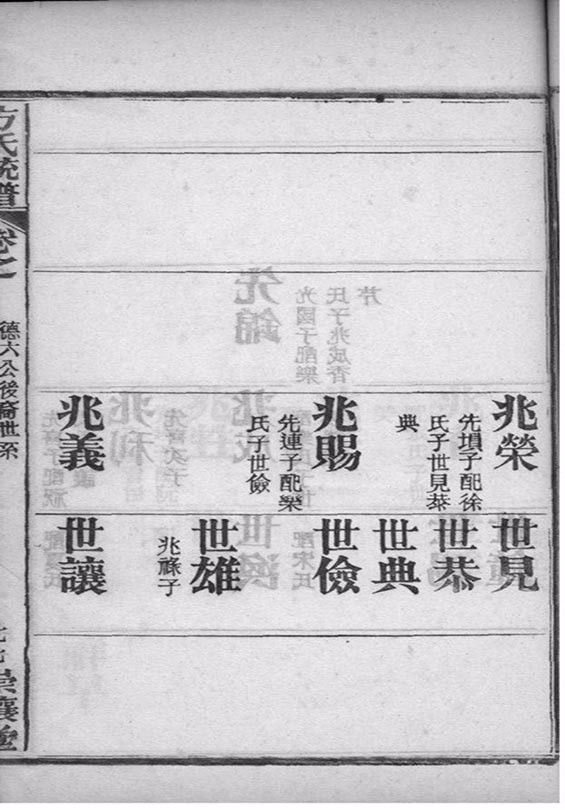 兆榮
先塤子配徐
氏子世見恭
典
兆賜
先連子配欒
氏子世儉
兆義
世見
世恭
世典
世儉
世雄
兆稱子
世讓
方氏統譜
卷之一
德六公後裔世系
七七
崇讓堂